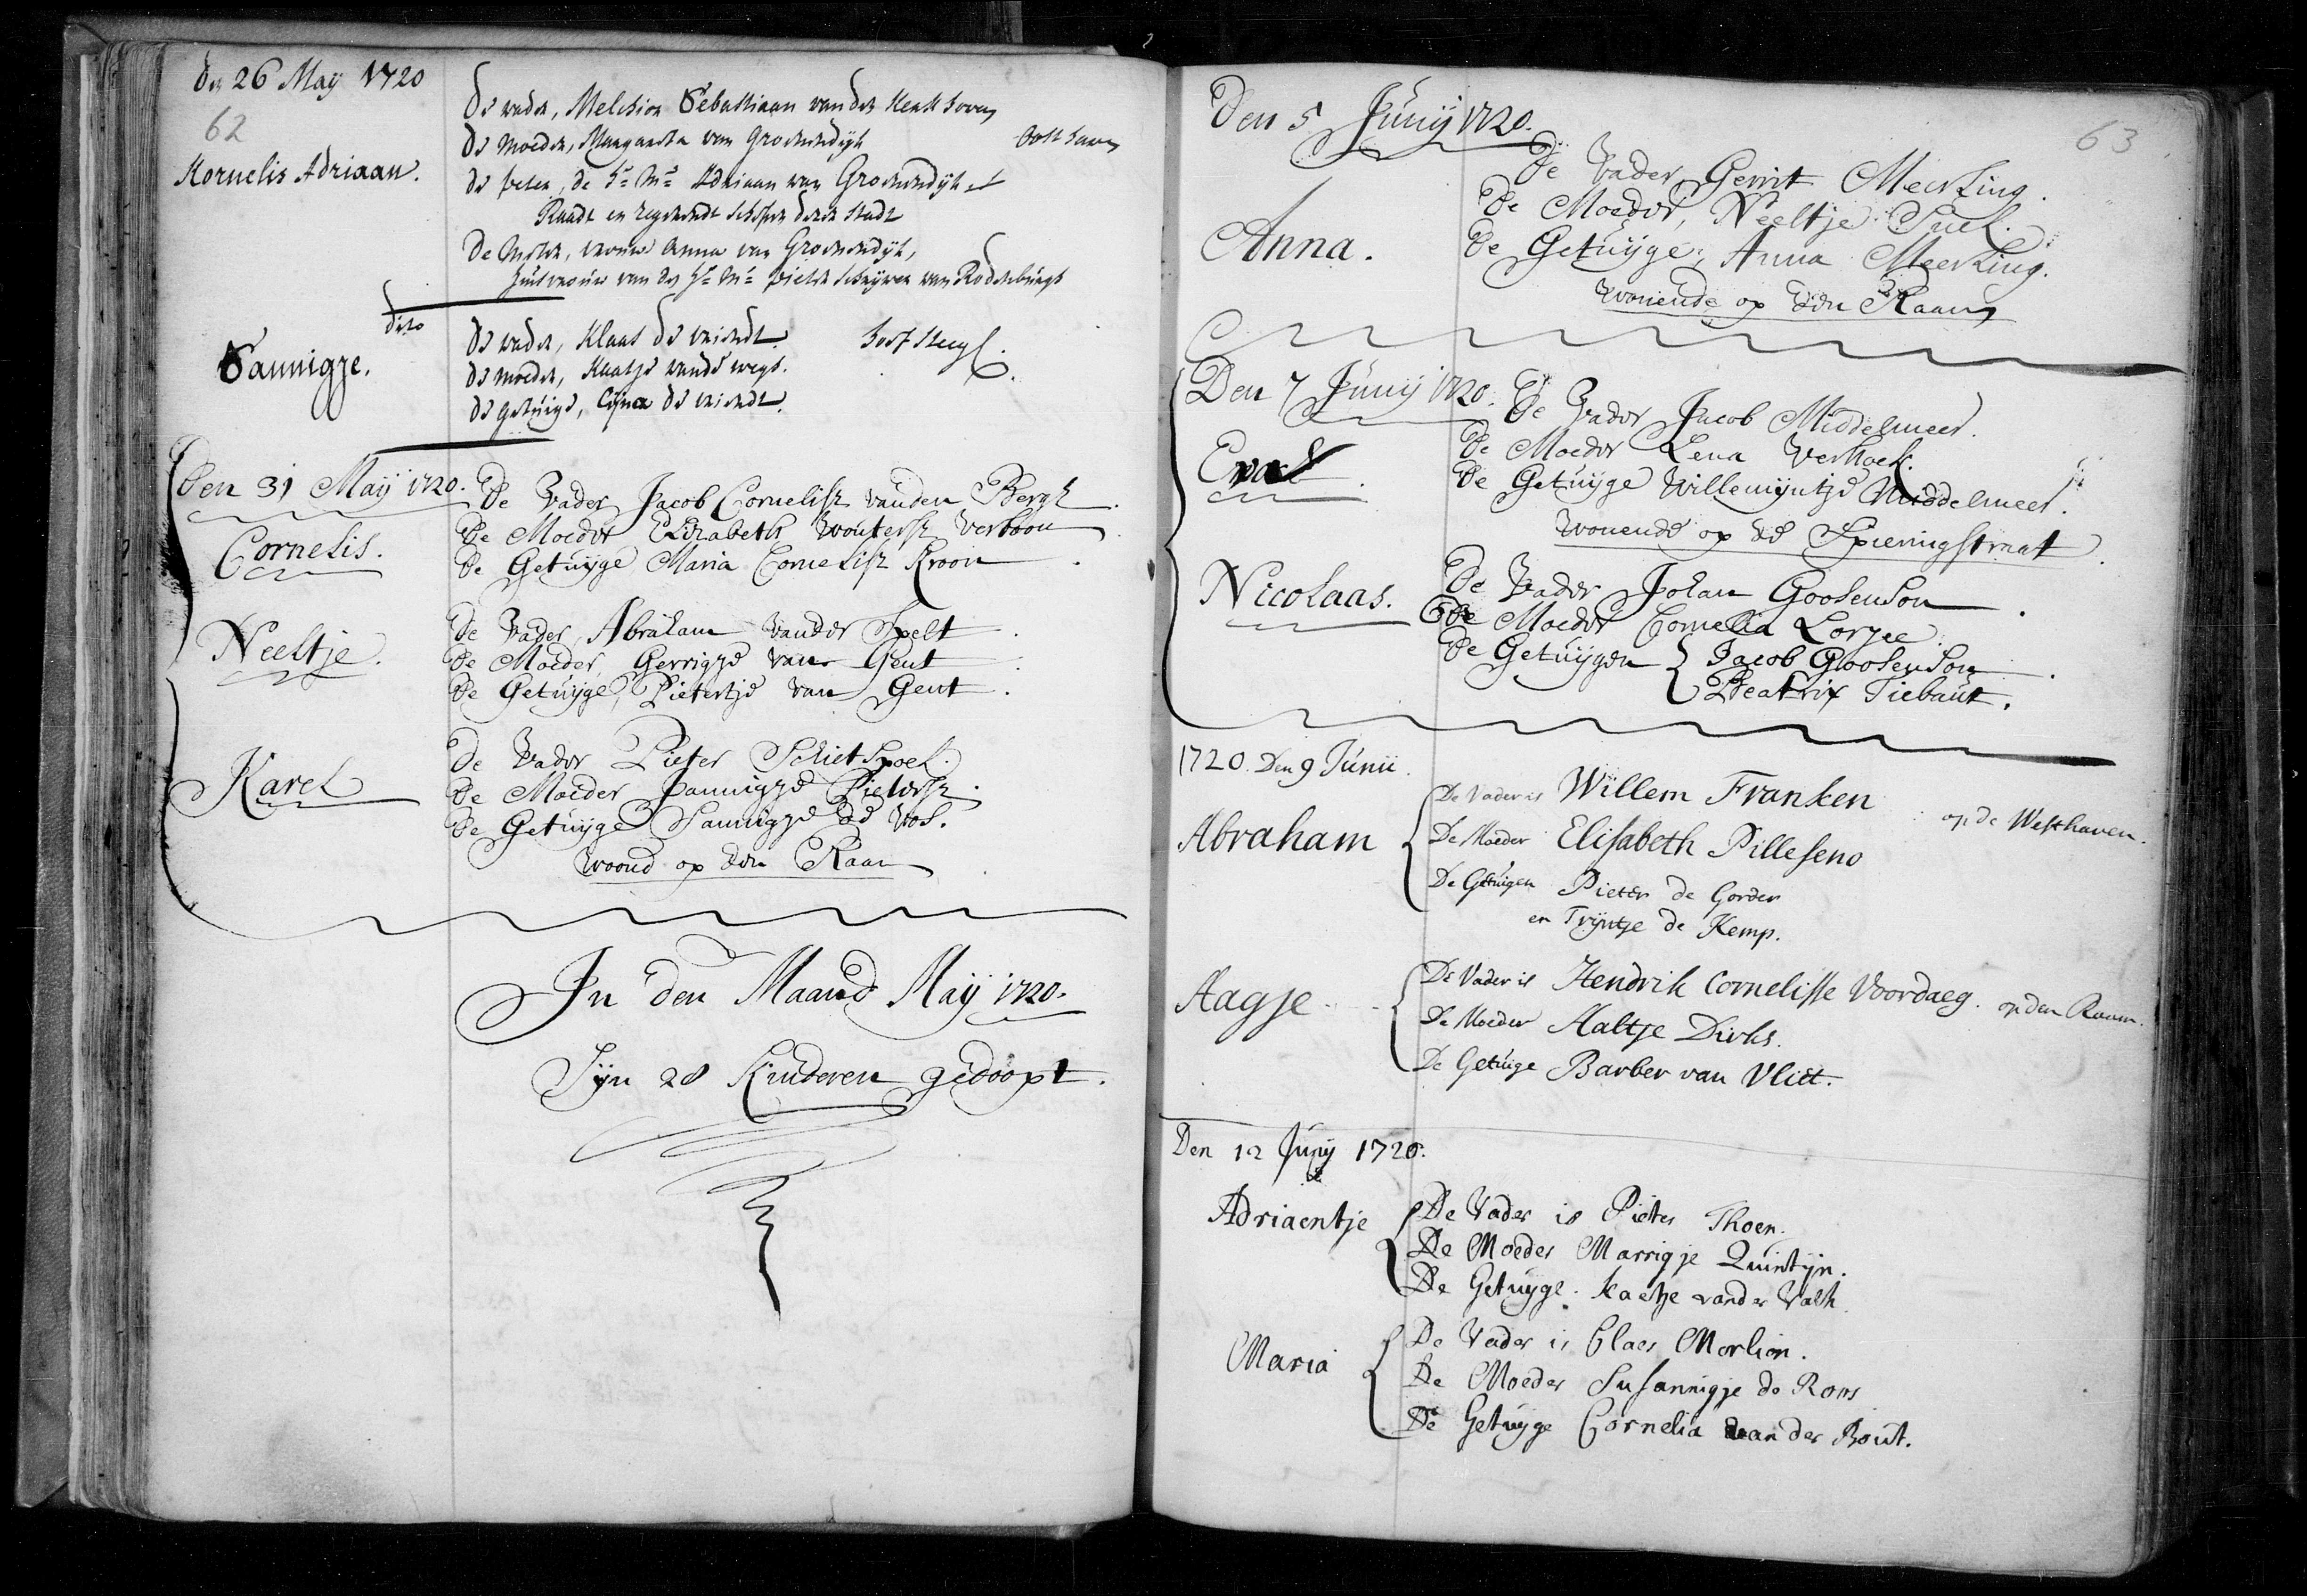 den 26 Maij 1720
62
Kornelis Adriaan.
de vader, Melchior Sebastiaan vander
de moeder, Margareta van Groenendijk
Oosthaven
de peter, de Hr. Mr. Adriaan van Groenendijk
Raadt en regerendt schepen dezer stadt
De meter, vrouw Anna van Groenendijk,
huisvrouw van de Hr. Mr. Pieter Schrijver van Roddenburgh
dito
Sannigje.
de vader, Klaas de vriendt.
de moeder, Kaatje vande wegt.
de getuige, Cijna de vriendt.
Den 31 Maij 1720.
Cornelis.
De Vader Jacob Cornelisz vanden Bergh.
De Moeder Elizabeth Woutersz Verboon
De Getuijge Maria Cornelisz Kroon
Neeltje.
De Vader, Abraham vander Spelt.
De Moeder, Gerrigje van Gent.
De Getuijge, Pietertje van Gent.
Karel
De Vader Pieter Schietspoel.
De Moeder Jannigje Pietersz.
De Getuijge Sannigje de Vos.
woond op den Raam
In den Maand Maij 1720.
Sijn 28 Kinderen gedoopt.
63
Den 5 Junij 1720.
Anna.
De Vader Gerrit Meerking.
De Moeder, Neeltje Snel.
De Getuijge, Anna Meerking.
wonende op den Raam
Den 7 Junij 1720.
De Vader Jacob Middelmeer.
De Moeder Lena Verhoek.
De Getuijge Willemijntje Middelmeer.
wonende op de Spieringstraat
Nicolaas.
De Vader Johan Goosenson
De Moeder Cornelia Lorjee
De Getuijgen { Jacob Goosenson
Beatrix Tiebaut.
1720. Den 9 Junii.
Abraham
De Vader is Willem Franken op de Westhaven.
De Moeder Elisabeth Pilleseno
De Getuigen Pieter de Gorder
en Trijntje de Kemp.
Aagje
De Vader is Hendrik Cornelisse Voordaeg. op den Raam.
De Moeder Aaltje Dirks.
De Getuige Barber van Vliet.
Den 12 Junij 1720.
Adriaentje
De Vader is Pieter Thoen.
De Moeder Marrigje Quintijn.
De Getuijge. Kaetje vander Valk
Maria
De Vader is Claes Morlion.
De Moeder Susannigje de Roos
De Getuijge Cornelia van der Bout.